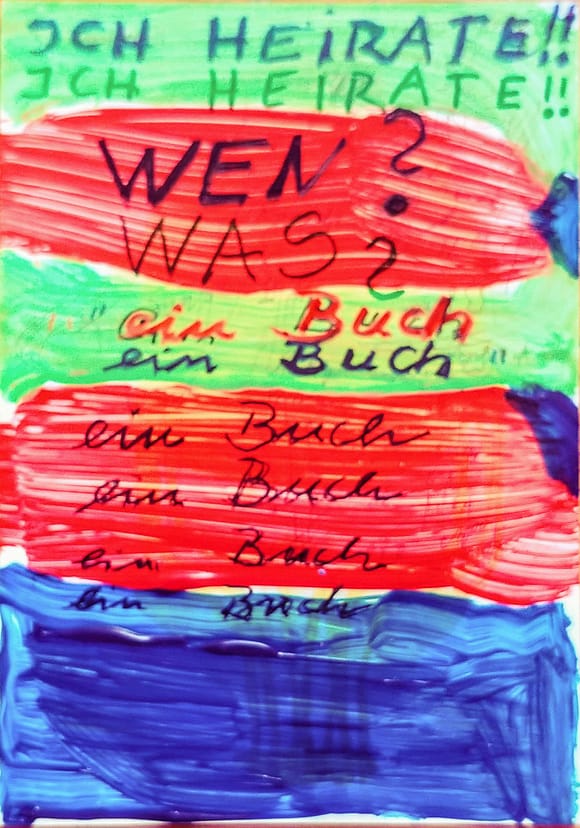 ICH HEIRATE!!
ICH HEIRATE!!
WEN?
WAS?
"ein Buch
ein Buch"
ein Buch
ein Buch
ein Buch
ein Buch